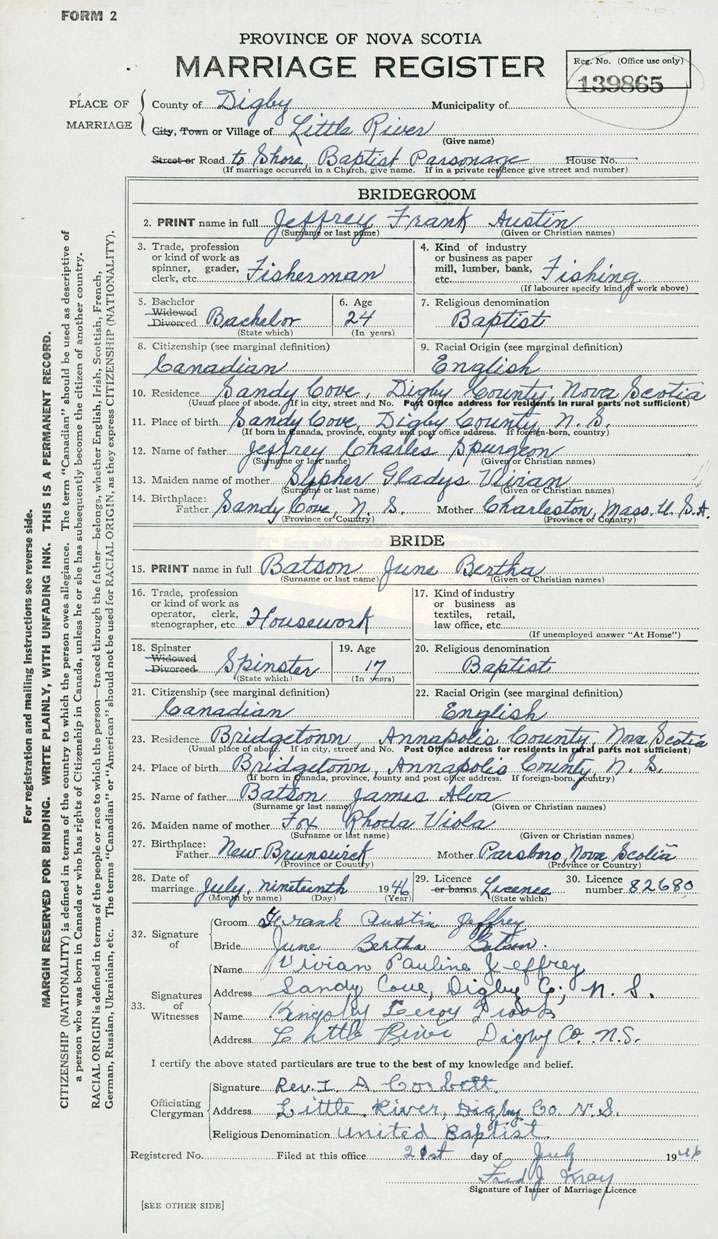 FORM 2
PROVINCE OF NOVA SCOTIA
MARRIAGE REGISTER
Reg. No. (Office use only)
139865
PLACE OF MARRIAGE
County of Digby Municipality of
City, Town or Village of Little River
(Give name)
Street or Road to Shore, Baptist Parsonage House No.
(If marriage occurred in a Church, give name. If in a private residence give street and number)
BRIDEGROOM
2. PRINT name in full Jeffrey Frank Austin
(Surname or last name) (Given or Christian names)
3. Trade, profession or kind of work as spinner, grader, clerk, etc. Fisherman
4. Kind of industry or business as paper mill, lumber, bank, etc. Fishing
(If labourer specify kind of work above)
5. Bachelor Widowed Divorced Bachelor
(State which)
6. Age 24
(In years)
7. Religious denomination
Baptist
8. Citizenship (see marginal definition)
Canadian
9. Racial Origin (see marginal definition)
English
10. Residence Sandy Cove, Digby County, Nova Scotia
(Usual place of abode. If in city, street and No. Post Office address for residents in rural parts not sufficient)
11. Place of birth Sandy Cove, Digby County, N. S.
(If born in Canada, province, county and post office address. If foreign-born, country)
12. Name of father Jeffrey Charles Spurgeon
(Surname or last name) (Given or Christian names)
13. Maiden name of mother Sypher Gladys Vivian
(Surname or last name) (Given or Christian names)
14. Birthplace: Father Sandy Cove, N. S. Mother Charleston, Mass. U. S. A.
(Province or Country) (Province or Country)
BRIDE
15. PRINT name in full Batson June Bertha
(Surname or last name) (Given or Christian names)
16. Trade, profession or kind of work as operator, clerk, stenographer, etc. Housework
17. Kind of industry or business as textiles, retail, law office, etc.
(If unemployed answer "At Home")
18. Spinster Widowed Divorced Spinster
(State which)
19. Age 17
(In years)
20. Religious denomination
Baptist
21. Citizenship (see marginal definition)
Canadian
22. Racial Origin (see marginal definition)
English
23. Residence Bridgetown, Annapolis County, Nova Scotia
(Usual place of abode. If in city, street and No. Post Office address for residents in rural parts not sufficient)
24. Place of birth Bridgetown, Annapolis County, N. S.
(If born in Canada, province, county and post office address. If foreign-born, country)
25. Name of father Batson James Alva
(Surname or last name) (Given or Christian names)
26. Maiden name of mother Fox Rhoda Viola
(Surname or last name) (Given or Christian names)
27. Birthplace: Father New Brunswick Mother Parsboro, Nova Scotia
(Province or Country) (Province or Country)
28. Date of marriage July, nineteenth 1946
(Month by name) (Day) (Year)
29. Licence or banns Licence
(State which)
30. Licence number 82680
32. Signature of
Groom Frank Austin Jeffrey
Bride June Bertha Batson.
33. Signatures of Witnesses
Name Vivian Pauline Jeffrey
Address Sandy Cove, Digby Co; N. S.
Name Kingsley Leroy
Address Little River Digby Co. N.S.
I certify the above stated particulars are true to the best of my knowledge and belief.
Officiating Clergyman
Signature Rev. I. A. Corbett
Address Little River, Digby Co. N. S.
Religious Denomination United Baptist.
Registered No. Filed at this office 21st day of July 1946
Fred J.
Signature of Issuer of Marriage Licence
[SEE OTHER SIDE]
For registration and mailing instructions see reverse side.
MARGIN RESERVED FOR BINDING. WRITE PLAINLY, WITH UNFADING INK. THIS IS A PERMANENT RECORD.
CITIZENSHIP (NATIONALITY) is defined in terms of the country to which the person owes allegiance. The term "Canadian" should be used as descriptive of
a person who was born in Canada or who has rights of Citizenship in Canada, unless he or she has subsequently become the citizen of another country.
RACIAL ORIGIN is defined in terms of the people or race to which the person—traced through the father—belongs, whether English, Irish, Scottish, French,
German, Russian, Ukrainian, etc. The terms "Canadian" or "American" should not be used for RACIAL ORIGIN, as they express CITIZENSHIP (NATIONALITY).